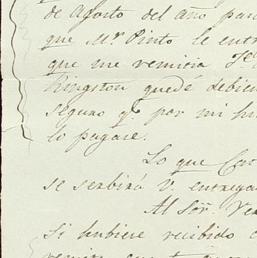 de Agosto del año pasa
que Mr. Pinto le entr
que me remitia
Kingston quedé debien
seguro qe. por mi hu
lo pagare.
Lo que
se serbirá V. entrega
Al Sor.
Si hubiere recibido